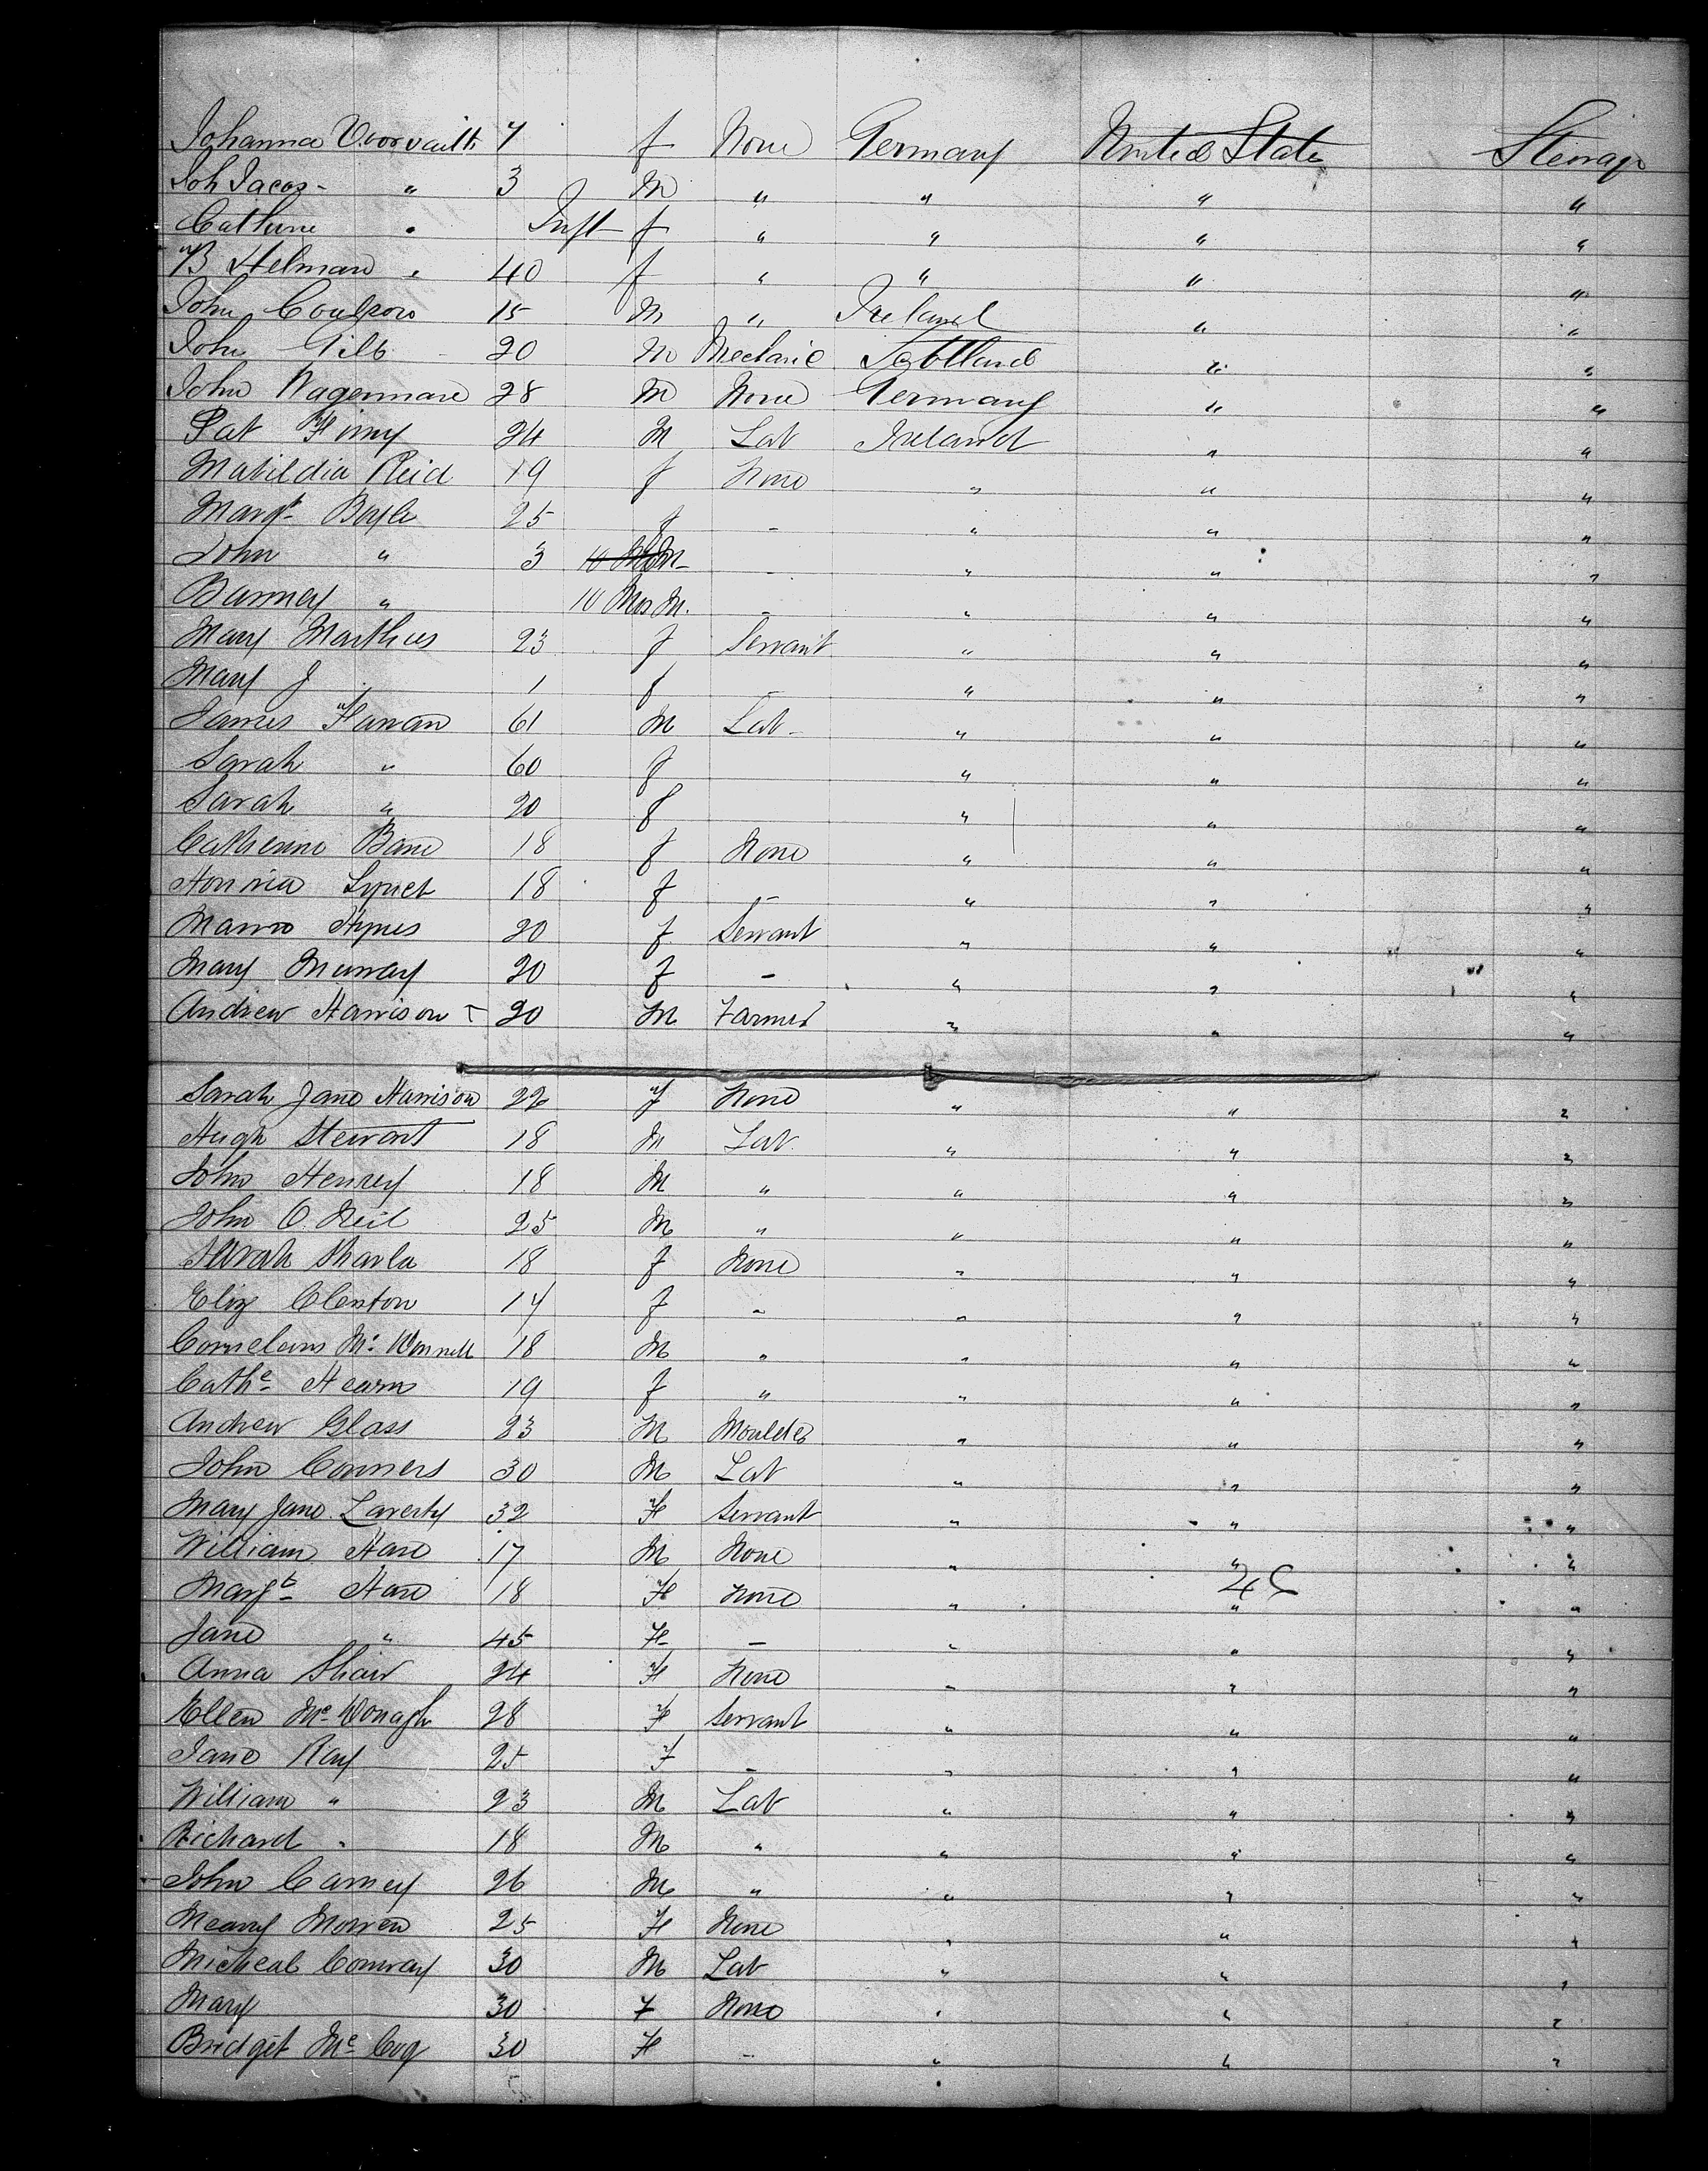 Johanna Voorvailt 7 f None Germany United States Steerage
Joh Jacos - " 3 M " " " "
Cathrine " Inft f " " " "
B Helman " 40 f " " " "
John Coulson 15 M " Ireland " "
John Gilb 20 M Mechanic Scotland " "
John Wagermane 28 M None Germany " "
Pat Finny 24 M Lab Ireland " "
Matildia Reid 19 f None " " "
Margt Boyle 25 f - " " "
John " 3 10 Mos M - " " "
Barney " 10 Mos M. - " " "
Mary Marthus 23 f Servant " " "
Mary J 1 f - " " "
James Hanan 61 M Lab - " " "
Sarah " 60 f " " "
Sarah " 20 f " " "
Catherine Bane 18 f None " " "
Honnria Lynch 18 f - " " "
Hynes 20 f Servant " " "
Mary Murray 20 f - " " "
Andrew Harrison 20 M Farmer " " "
Sarah Jane Harrison 22 f None " " "
Hugh Stewart 18 M Lab " " "
John Henrey 18 M " " " "
John O Neil 25 M " " " "
Sarah 18 f None " " "
Eliz Clenton 14 f - " " "
Cornelous Mc Donnell 18 M " " " "
Cathe Hearn 19 f " " " "
Andrew Glass 23 M Moulder " " "
John Conners 30 M Lab " " "
Mary Jane Laverty 32 F Servant " " "
William Hare 17 M None " " "
48
Margt Hare 18 F None " " "
Jane " 45 F - " " "
Anna Shaw 24 F None " " "
Ellen Mc Donagh 28 F Servant " " "
Jane Ray 25 F - " " "
William " 23 M Lab " " "
Richard " 18 M " " " "
John Carney 26 M " " " "
Meary Morren 25 F None " " "
Micheal Conway 30 M Lab " " "
Mary 30 F None " " "
Bridget Mc Coy 30 F - " " "